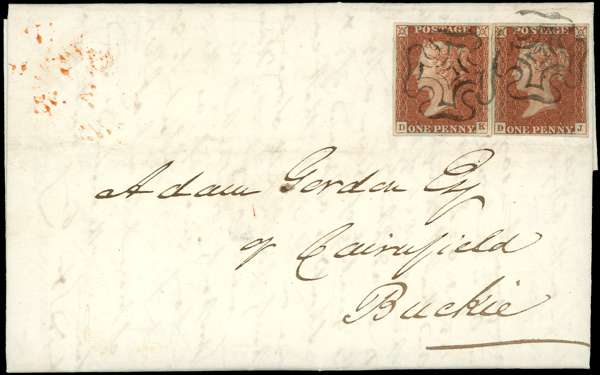 POSTAGE POSTAGE
D ONE PENNY K D ONE PENNY J
Adam Gordon Esq
of Cairnfield
Buckie